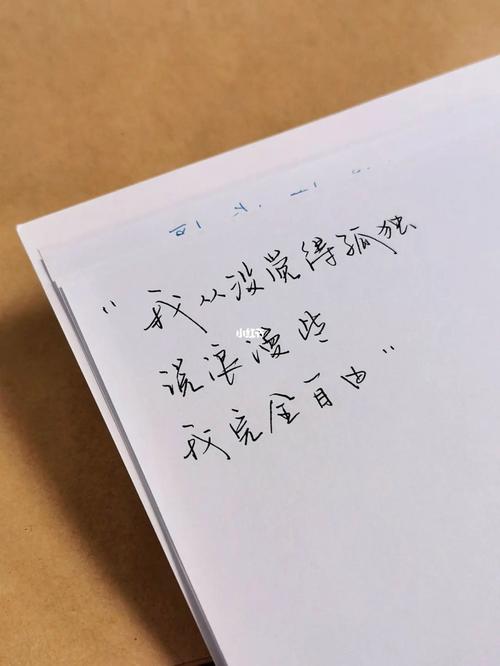 “我从没觉得孤独
小红书
说浪漫些
我完全自由”